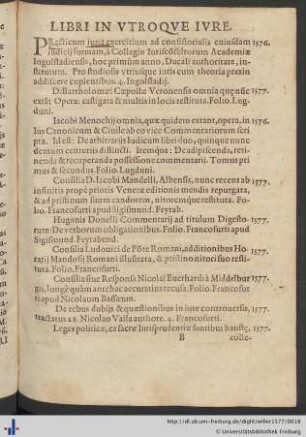 LIBRI IN VTROQVE IVRE.
PRacticum iuris exercitium ad consistorialis cuiusdam 1576.
iudicij formam, à Collegio Iurisconsultorum Academiæ
Ingolstadiensis, hoc primùm anno, Ducali authoritate, in-
stitutum. Pro studiosis vtriusque iuris cum theoria praxin
addiscere cupientibus. 4. Ingolstadij.
D. Bartholomæi Cæpollæ Veronensis omnia quæ nūc 1577.
extāt Opera: castigata & multis in locis restituta. Folio. Lug-
duni.
Iacobi Menochij omnia, quæ quidem extant, opera, in 1576.
Ius Canonicum & Ciuile ab eo vice Commentariorum scri
pta. Idest: De arbitrarijs Iudicum libri duo, quinque nunc
demum centurijs distincti. Itemque: De adipiscenda, reti-
nenda & recuperanda possessione commentarij. Tomus pri
mus & secundus. Folio. Lugduni.
Consilia D. Iacobi Mandelli, Albensis, nunc recens ab 1577.
infinitis propè prioris Venetæ editionis mendis repurgata,
& ad pristinum suum candorem, nitoremque restituta. Fo-
lio. Francofurti apud Sigismund. Feyrab.
Hugonis Donelli Commentarij ad titulum Digesto- 1577.
rum: De verborum obligationibus. Folio. Francofurti apud
Sigismund Feyrabend.
Consilia Ludouici de Pōte Romani, additionibus Ho- 1577.
ratij Mandosij Romani illustrata, & pristino nitori suo resti-
tuta. Folio. Francofurti.
Consilia siue Responsa Nicolai Euerhardi à Middelbur 1577.
go, longè quàm antehac accuratius recusa. Folio. Francofur
ti apud Nicolaum Bassæum.
De rebus dubijs & quæstionibus in iure controuersis, 1577.
tractatus xx. Nicolao Valla authore. 4. Francofurti.
Leges politicæ, ex sacræ Iurisprudentiæ fontibus haustę, 1577.
B colle-
http://dl.ub.uni-freiburg.de/diglit/willer1577/0019
© Universitätsbibliothek Freiburg